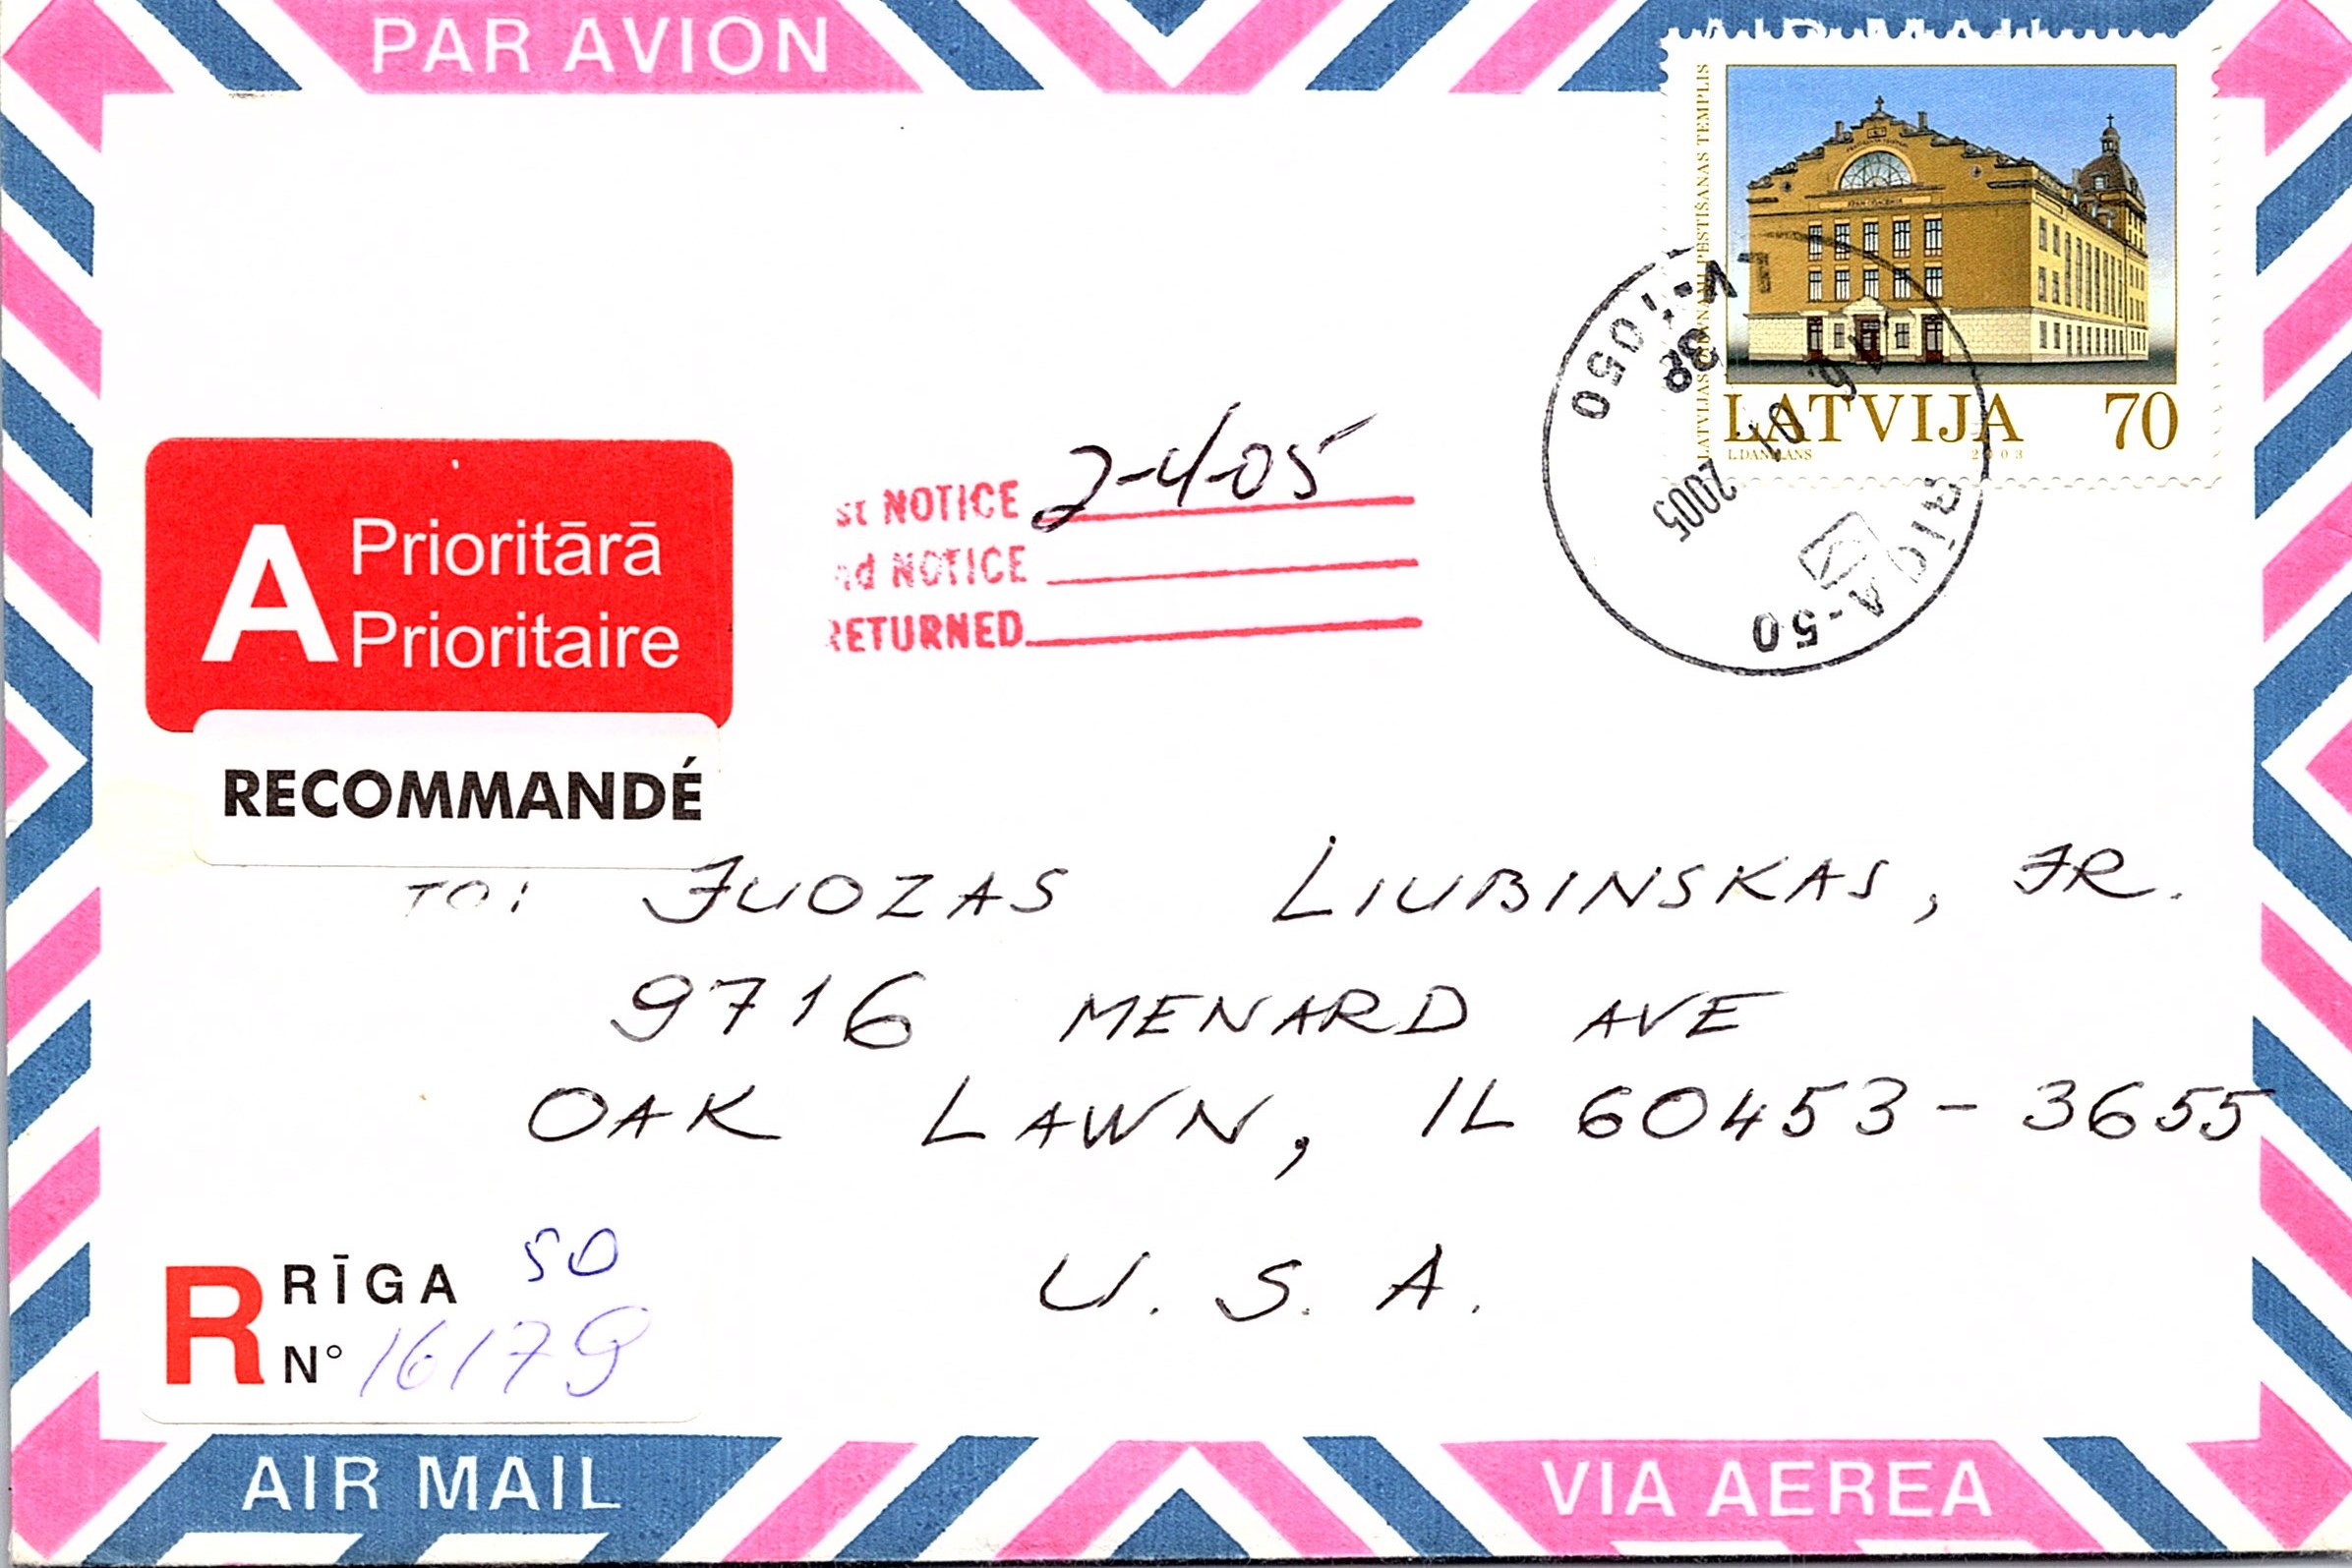 PAR AVION
AIR MAIL
LATVIJAS
PESTĪŠANAS TEMPLIS
LATVIJA 70
2003
LV-1050
32
16. 01 2005
RĪGA-50
A Prioritārā
Prioritaire
RECOMMANDÉ
st NOTICE 2-4-05
nd NOTICE
RETURNED
TO: JUOZAS LIUBINSKAS, JR.
9716 MENARD AVE
OAK LAWN, IL 60453-3655
U. S. A.
R RĪGA 50
N° 16179
AIR MAIL
VIA AEREA